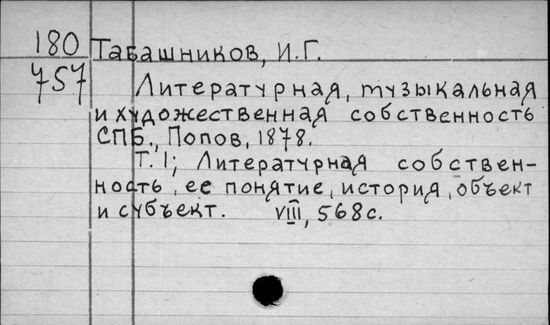 180 Табашников, И.Г.
757 Литературная, музыкальная
и художественная собственность
СПБ., Попов, 1878.
Т. I; Литературная собствен-
ность, ее понятие, история, объект
и субъект. VIII, 568с.